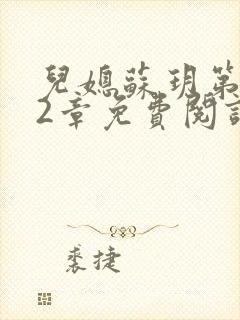 兒媳蘇玥第
2章免費閱讀
裘捷